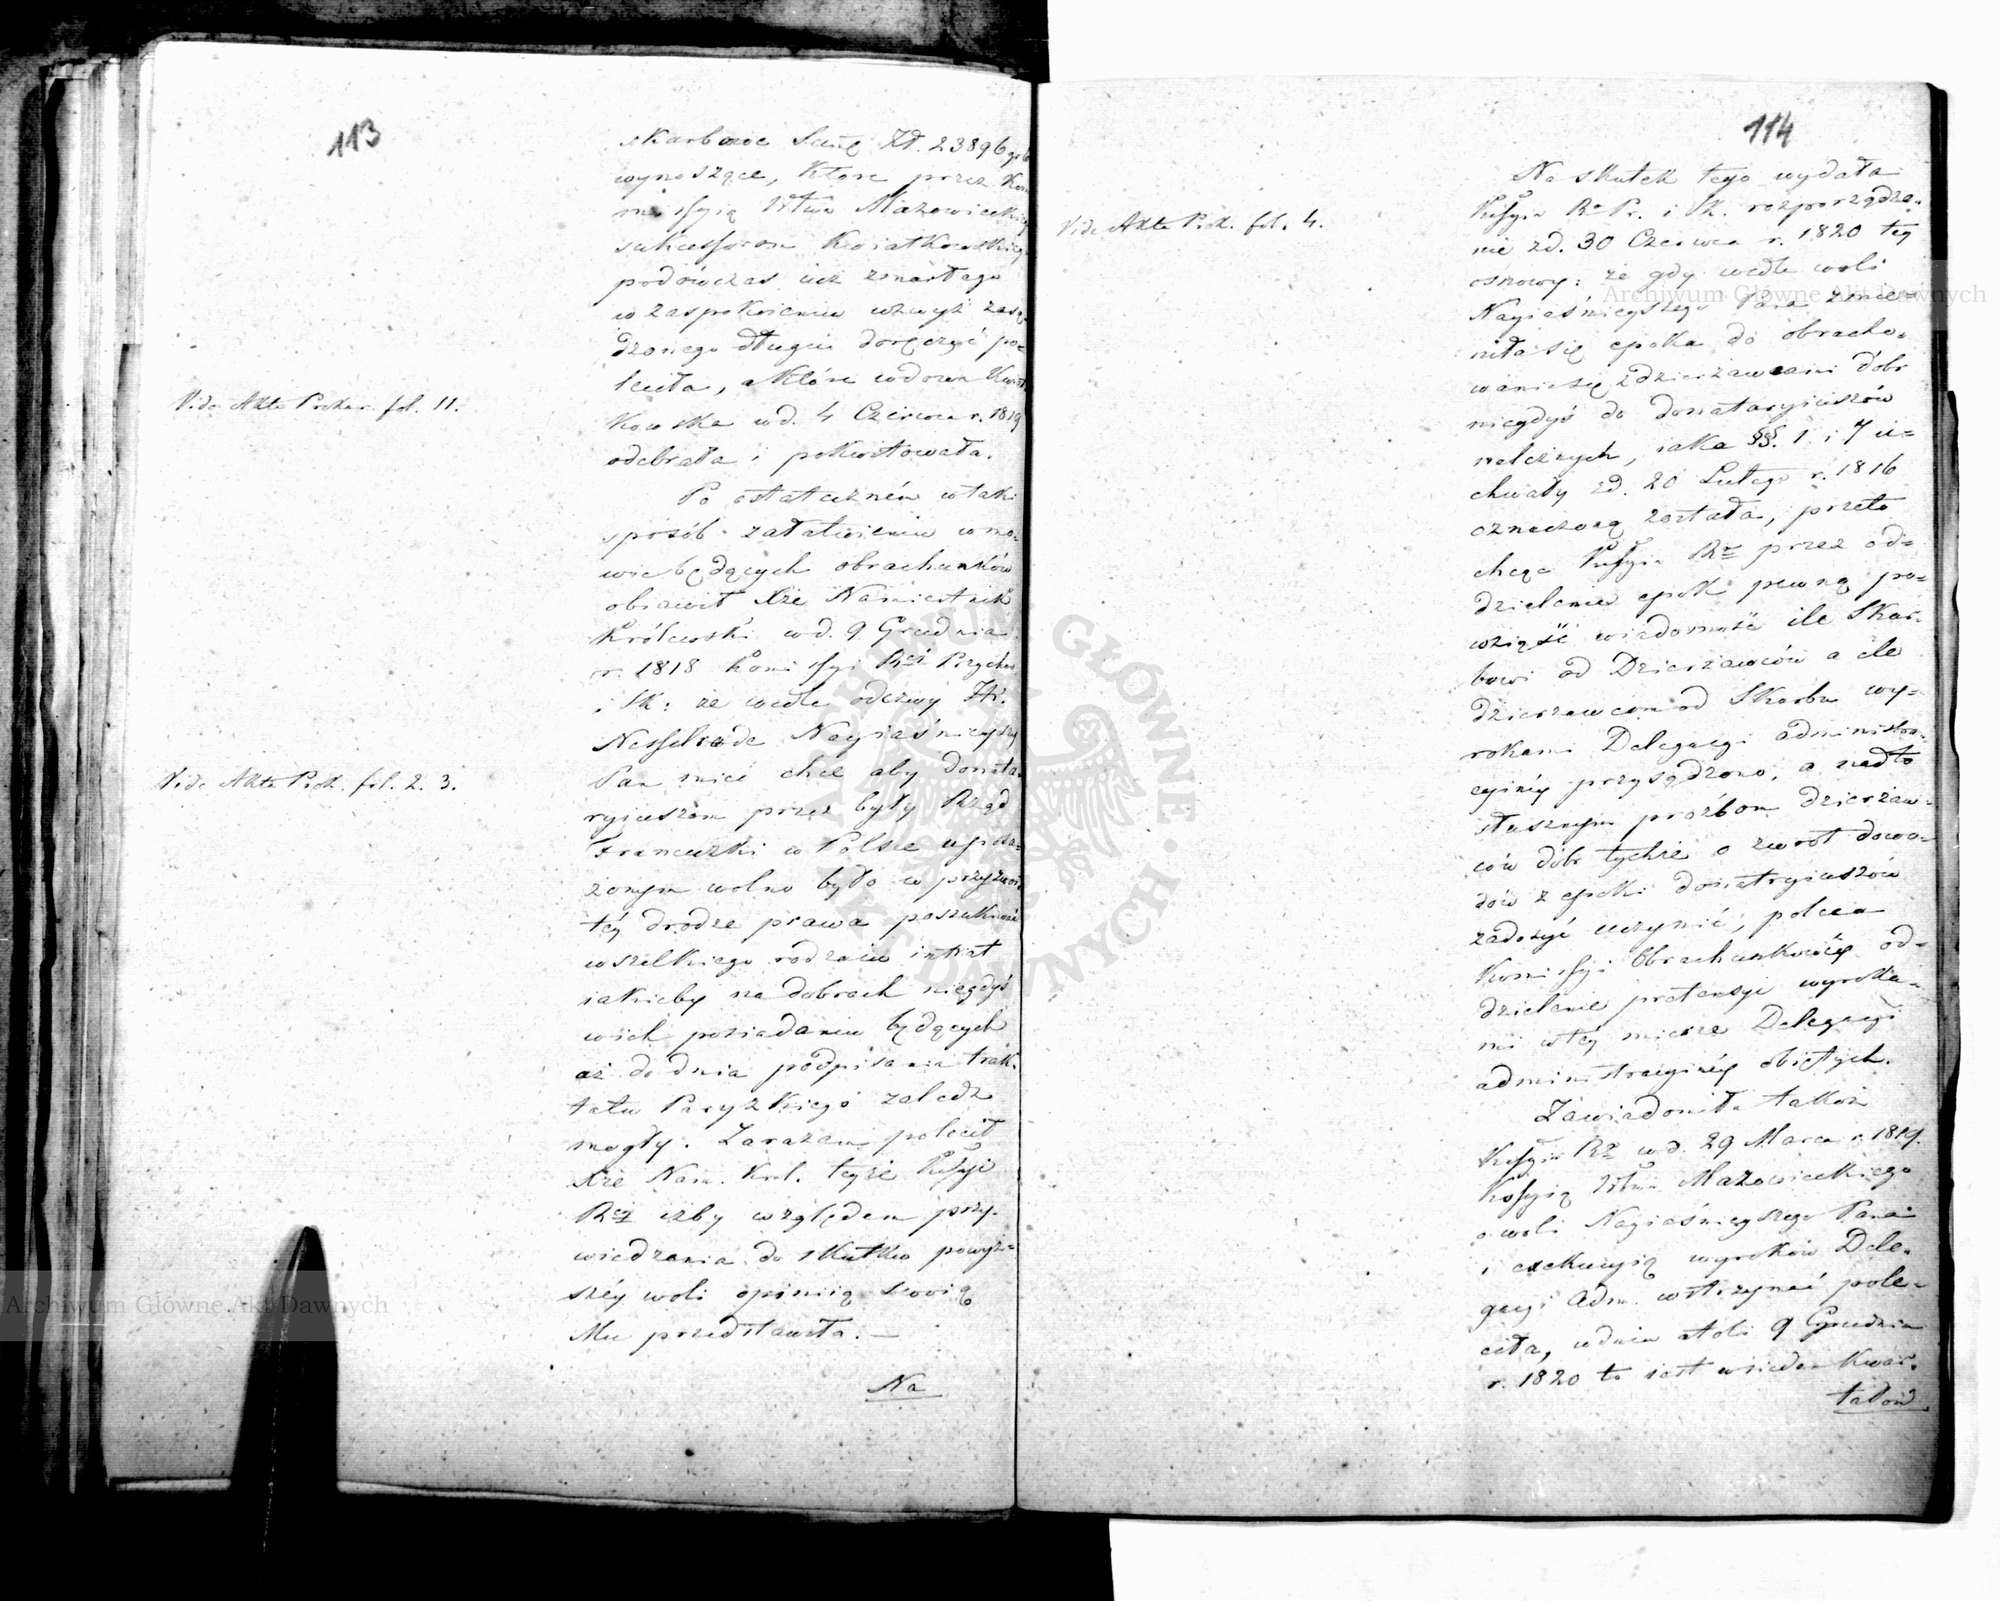 113
skarbowe Summę Zł. 23896 gr 6
wynoszące, które przez Kom
missyią Wtwa Mazowieckiego
sukcessorom Kwiatkowskiego
podówczas iuż zmarłego
w zaspokoieniu wzwyż zasą-
dzonego długu doręczyć po-
leciła, a które wdowa Kwiat
kowska w d. 4 Czerwca r. 1819
odebrała i pokwitowała.
Vide Akta Prokur. fol. 11.
Po ostatecznem w taki
sposób załatwieniu w mo-
wie będących obrachunków
obiawił Xże Namiestnik
Królewski w d. 9 Grudnia
r. 1818 Kommissyi Rwéj Przychod
i Sk: że wedle odezwy Hr.
Nesselrode Nayiaśnieyszy
Pan mieć chce aby donata-
ryiuszom przez były Rząd
Francuzki w Polsce uposa-
żonym wolno było w przyzwoi
téy drodze prawa poszukiwać
wszelkiego rodzaiu intrat
iakieby na dobrach niegdyś
w ich posiadaniu będących
aż do dnia podpisania trak-
tatu Paryzkiego zaledz
mogły. Zarazem polecił
Xże Nam. Król. teyże Kssyi
Rwéj iżby względem przy-
wiedzenia do skutku powyż-
széy woli opinią swoią
Mu przedstawiła. —
Vide Akta Prok. fol. 2. 3.
Na
114
Na skutek tego wydała
Kssyia Rwa Pr. i Sk. rozporządze-
nie z d. 30 Czerwca r. 1820 téy
osnowy: że gdy wedle woli
Nayiaśnieyszego Pana zmie-
niła się epoka do obracho-
wania się z dzierżawcami dóbr
niegdyś do donataryiuszów
należnych, iaka §§. 1. i 7 u-
chwały z d. 20 Lutego r. 1816
oznaczoną została, przeto
chcąc Kssyia Rwa przez od-
dzielenie epok pewną po-
wziąść wiadomość ile Skar-
bowi od Dzierżawców a ile
dzierżawcom od Skarbu wy-
rokami Delegacyi administra-
cyinéy przysądzono, a nadto
słusznym prozbom dzierżaw-
ców dóbr tychże o zwrot dowo-
dów z epoki donataryiuszów
zadosyć uczynić, poleca
Kommissyi Obrachunkowéy od-
dzielenie pretensyi wyroka-
mi w téy mierze Delegacyi
administracyinéy obiętych.
Vide Akta Prok. fol. 4.
Zawiadomiła także
Kssyia Rwa w d. 29 Marca r. 1819.
Kssyią Wtwa Mazowieckiego
o woli Nayiaśnieyszego Pana
i exekucyią wyroków Dele-
gacyi Adm. wstrzymać pole-
ciła, w dniu atoli 9 Grudnia
r. 1820 to iest w siedm kwar-
tałów